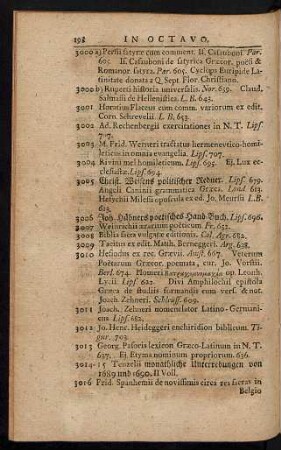 198 IN OCTAVO.
3000 a) Persii satyræ cum comment. Is. Casauboni Par.
605 Is. Casauboni de satyrica Græcor. poesi &
Romanor. satyra. Par. 605. Cyclops Euripide La-
tinitate donata a Q. Sept. Flor. Christiano.
3000 b) Ruperti historia universalis. Nor. 659. Claud.
Salmasii de Hellenistica. L. B. 643.
3001 Horatius Flaccus cum comm. variorum ex edit.
Corn. Schrevelii. L. B. 653.
3002 Ad. Rechenbergii exercitationes in N. T. Lips.
707.
3003 M. Frid. Werneri tractatus hermenevtico-homi-
leticus in omnia evangelia. Lips. 707.
3004 Rivini mel homileticum. Lips. 695. Ej. Lux ec-
clesiastic. Lips. 694.
3005 Christ. Weisens politischer Redner. Lips. 679.
Angeli Caninii grammatica Græca. Lond. 613.
Hesychii Milesii opuscula ex ed. Jo. Meursii L.B.
613.
3006 Joh. Hübners poetisches Hand-Buch. Lips. 696.
3007 Weinrichii ærarium poeticum. Fr. 652.
3008 Biblia sacra vulgatæ editionis. Col. Agr. 682.
3009 Tacitus ex edit. Matth. Berneggeri. Arg. 638.
3010 Helladius ex rec. Grævii. Aust. 667. Veterum
Poetarum Græcor. poemata, cur. Jo. Vorstii.
Berl. 674. Homeri βατραχομυομαχία op. Leonh.
Lycii Lips. 622. Divi Amphilochii epistola
Græca de studiis formandis cum vers. & not.
Joach. Zehneri. Schleus. 609.
3011 Joach. Zehneri nomenclator Latino-Germani-
cus. Lips. 682.
3012 Jo. Henr. Heideggeri enchiridion biblicum. Ti-
gur. 703.
3013 Georg. Pasoris lexicon Græco-Latinum in N. T.
637. Ej. Etyma nominum propriorum. 636.
3014-15 Tenzelii monathliche Unterredungen von
1689 und 1690. II Voll.
3016 Frid. Spanhemii de novissimis circa res sacras in
Belgio